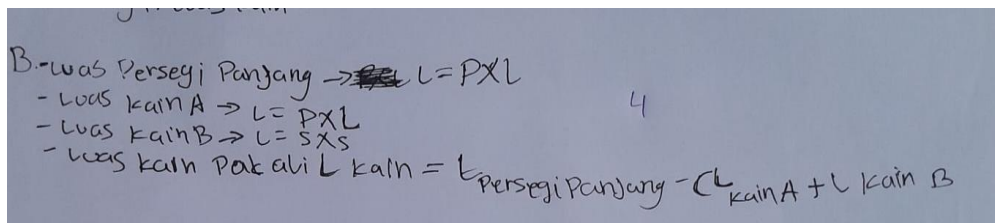 B.-Luas Persegi Panjang → L = PXL
- Luas kain A → L = PXL
4
- Luas kain B → L = SXS
- Luas kain Pak ali L kain = L Persegi Panjang - (L kain A + L kain B